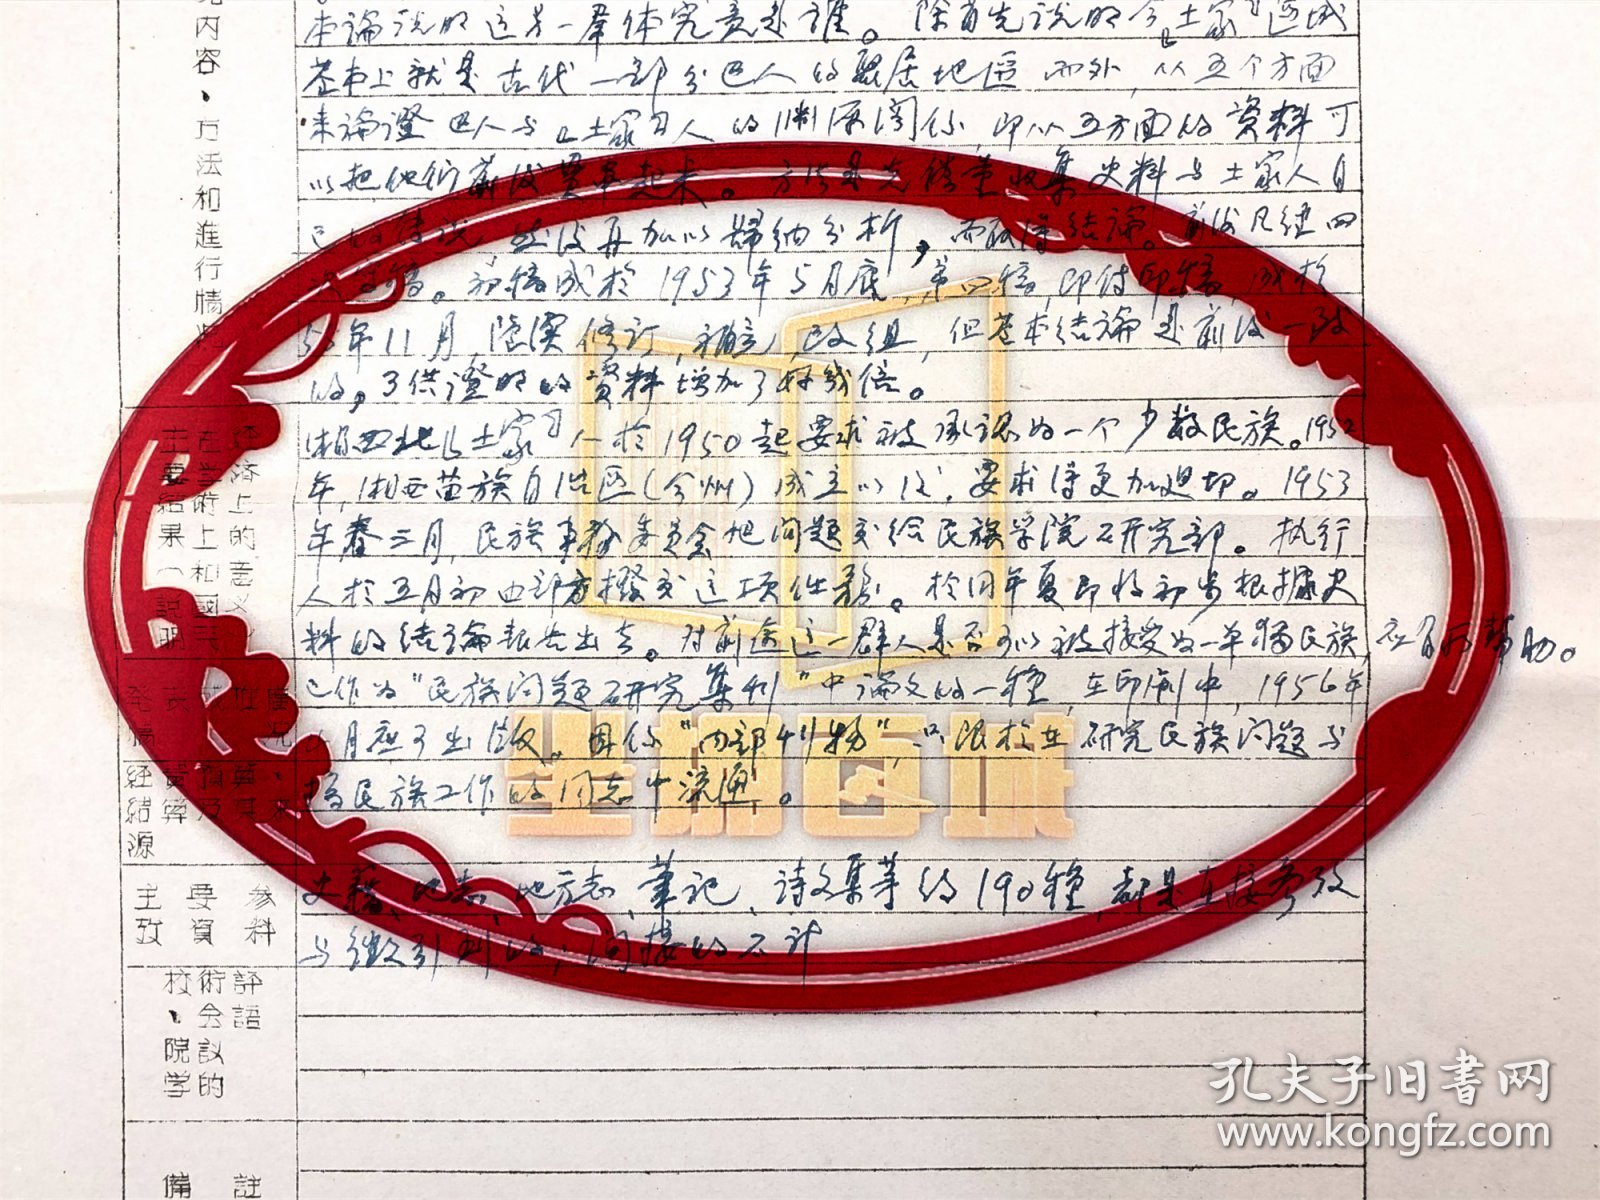 本論說明這另一羣体究竟是誰。除首先说明今「土家」區域
基本上就是古代一部分巴人的聚居地區而外，从五个方面
来論證巴人与「土家」人的渊源関係，即从五方面的資料可
以把他们前後貫串起来。方法是先儘量收集史料与土家人自
己的传说，然後再加以歸納分析，而取得结論。前後凡经四
次易稿。初稿成於1953年5月底，第四稿，即付印稿，成於
55年11月。陸續修訂，補充，改组，但基本结論是前後一致
的，可供證明的資料增加了好幾倍。
湘西北「土家」人於1950起要求被承認为一个少数民族。1952
年，湘西苗族自治区（今州）成立以後，要求得更加迫切。1953
年春三月，民族事務委員会把问題交給民族学院研究部。执行
人於五月初由部裏撥交這一項任務。於同年夏即将初步根據史
料的结論報告出去。对前途這一群人是否可以被接受为一单獨民族，应有所幫助。
已作为"民族问題研究集刊"中論文的一種，在印刷中，1956年
月应可出版。因係"内部刊物"，只限於在研究民族问題与
搞民族工作的同志中流通。
史籍、地志、地方志、筆記、诗文集等约190種，都是直接参攷
与徵引到的；间接的不计
究内容、方法和進行情況
主要結果（說明
在学術上和國民
经濟上的意义）
発表或推廣
情況
经費預算、
結算及其来
源
主要参
攷資料
校、院学
術会议的
評語
備註
全部百城
孔夫子旧书网
www.kongfz.com